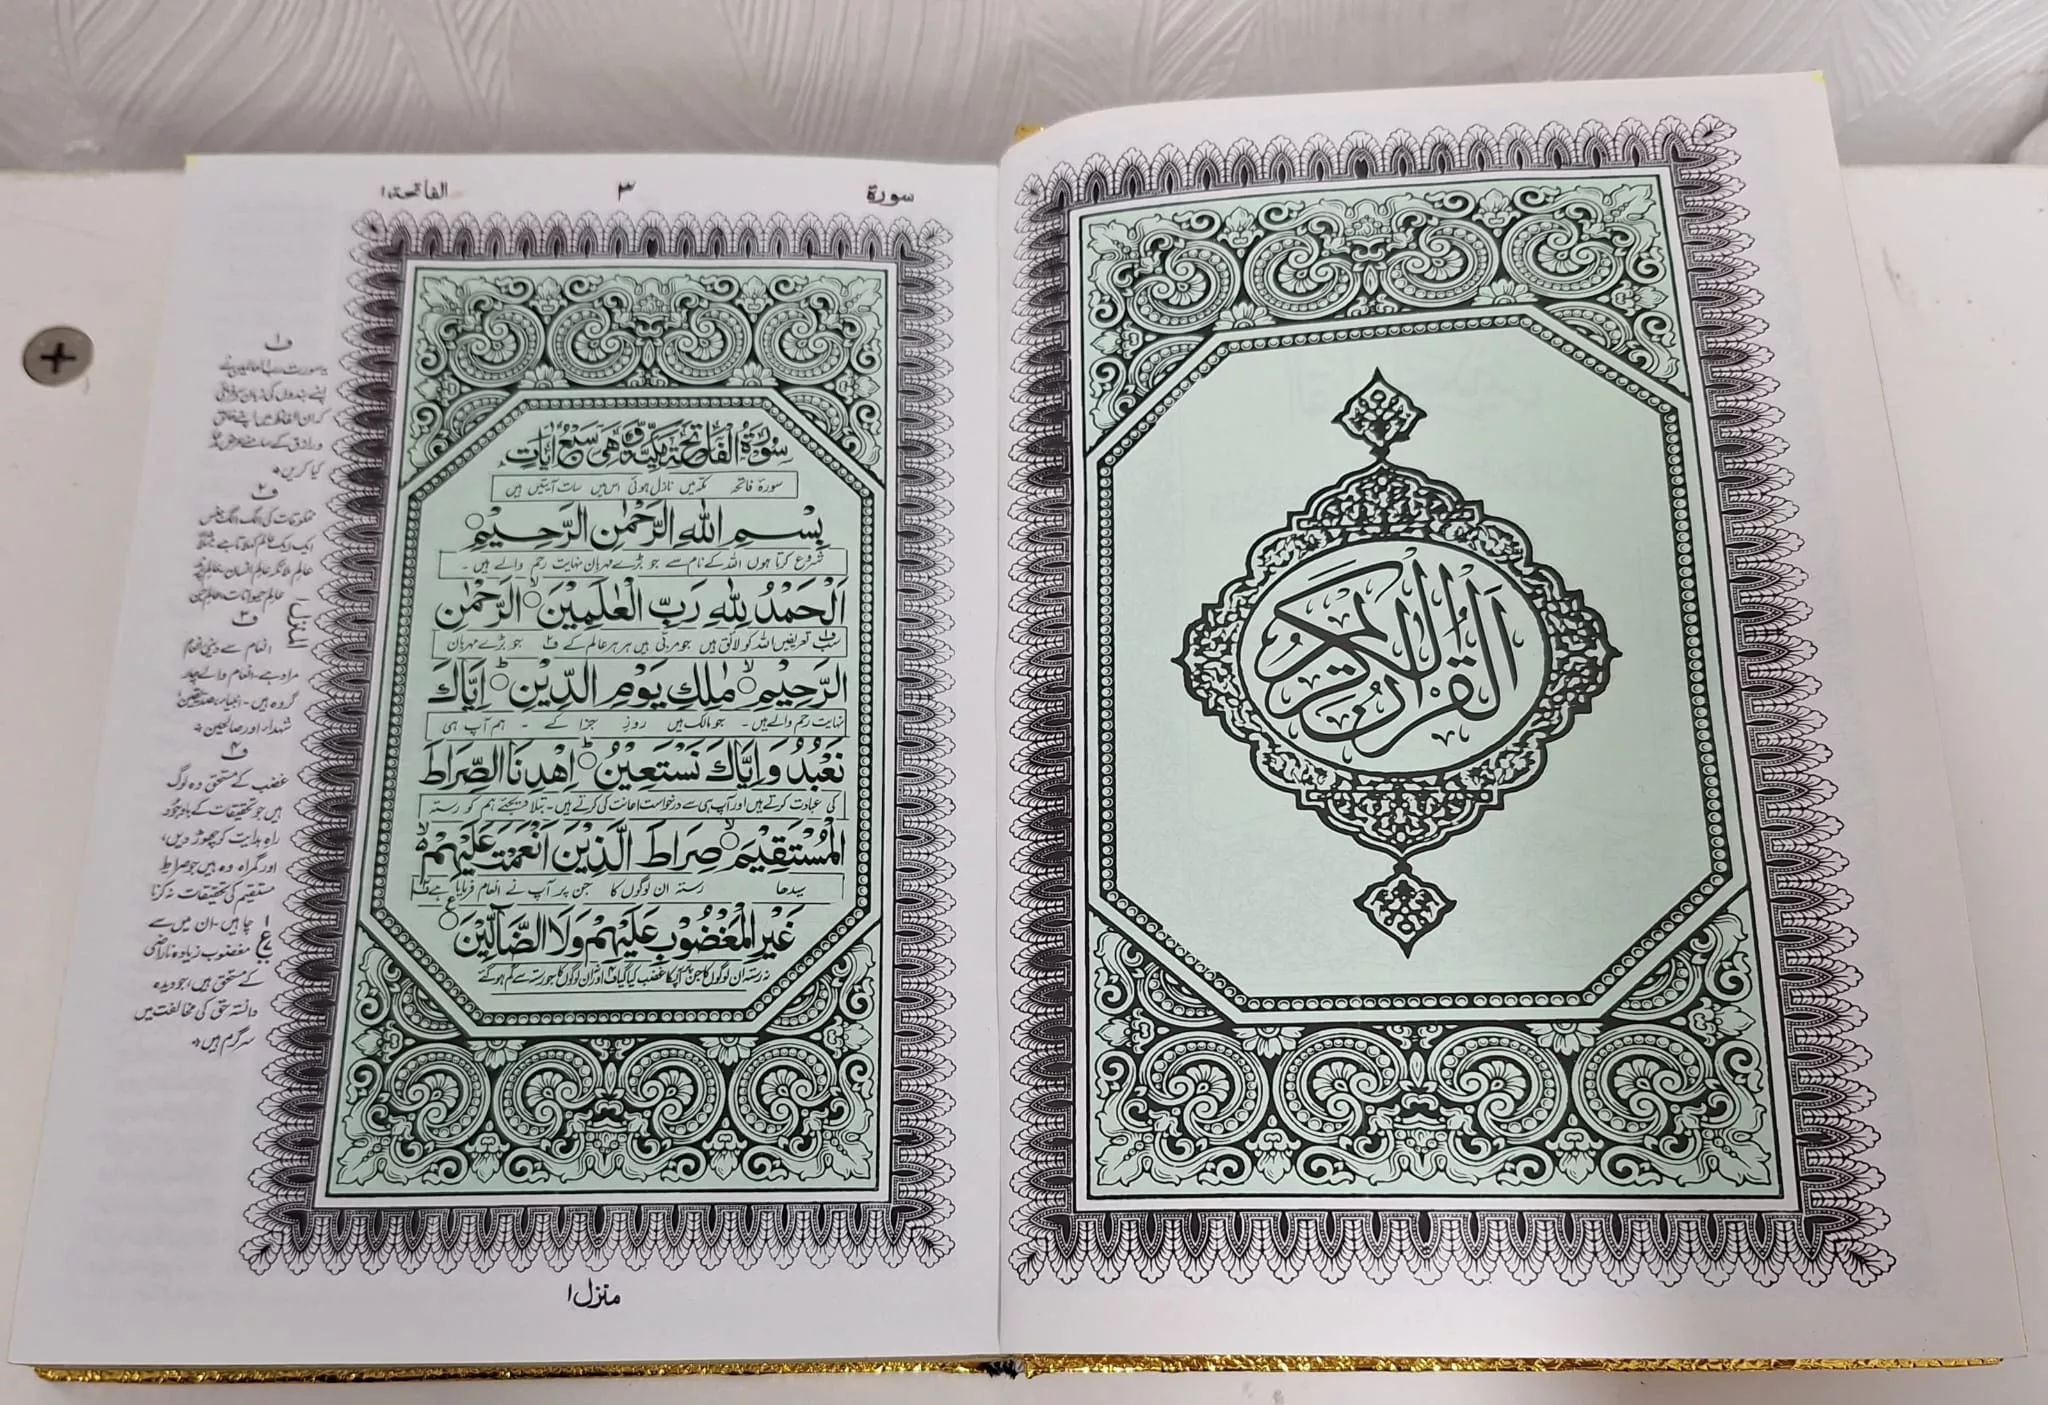 القرآن الكريم
سورة ٣ الفاتحة ١
سُوْرَةُ الْفَاتِحَةِ مَكِّيَّةٌ وَّهِيَ سَبْعُ اٰيَاتٍ
سورۂ فاتحہ مکہ میں نازل ہوئی اس میں سات آیتیں ہیں
بِسْمِ اللهِ الرَّحْمٰنِ الرَّحِيْمِ
شروع کرتا ہوں اللہ کے نام سے جو بڑے مہربان نہایت رحم والے ہیں ۔
اَلْحَمْدُ لِلّٰهِ رَبِّ الْعٰلَمِيْنَ ۙ الرَّحْمٰنِ
سب تعریفیں اللہ کو لائق ہیں جو مربی ہیں ہر ہر عالم کے ف۲ جو بڑے مہربان
الرَّحِيْمِ ۙ مٰلِكِ يَوْمِ الدِّيْنِ ؕ اِيَّاكَ
نہایت رحم والے ہیں ۔ جو مالک ہیں روزِ جزا کے ۔ ہم آپ ہی
نَعْبُدُ وَاِيَّاكَ نَسْتَعِيْنُ ؕ اِهْدِنَا الصِّرَاطَ
کی عبادت کرتے ہیں اور آپ ہی سے درخواست اعانت کی کرتے ہیں ۔ بتلا دیجئے ہم کو رستہ
الْمُسْتَقِيْمَ ۙ صِرَاطَ الَّذِيْنَ اَنْعَمْتَ عَلَيْهِمْ ۙ
سیدھا رستہ ان لوگوں کا جن پر آپ نے انعام فرمایا ہے ف۳
غَيْرِ الْمَغْضُوْبِ عَلَيْهِمْ وَلَا الضَّآلِّيْنَ
نہ رستہ ان لوگوں کا جن پر آپ کا غضب کیا گیا ف۴ اور نہ ان لوگوں کا جو رستہ سے گم ہو گئے
ف۱
یہ سورت رب العالمین نے
اپنے بندوں کی زبان سے فرمائی
کہ ان الفاظ میں اپنے خالق
و رازق کے سامنے عرض
کیا کریں
ف۲
مخلوقات کی الگ الگ جنس
ایک ایک عالم کہلاتا ہے مثلاً
عالم ملائکہ عالم انسان
عالم حیوانات، عالم جن
ف۳
انعام سے دینی انعام
مراد ہے۔ انعام والے چار
گروہ ہیں۔ انبیاء، صدیقین
شہداء اور صالحین
ف۴
غضب کے مستحق وہ لوگ
ہیں جو تحقیقات کے باوجود
راہ ہدایت کو چھوڑ دیں،
اور گمراہ وہ ہیں جو صراط
مستقیم کی تحقیقات نہ کرنا
چاہیں۔ ان میں سے
مغضوب زیادہ ناراضی
کے مستحق ہیں، جو دیدہ
دانستہ حق کی مخالفت میں
سرگرم ہیں
ع
منزل ١